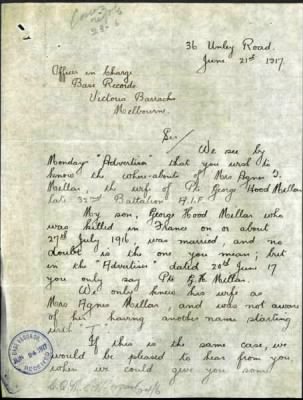 36 Unley Road.
June 21st 1917.
Officer in Charge
Base Records
Victoria Barracks
Melbourne.
Sir/
We see by
Monday "Advertiser" that you wish to
know the where-abouts of Mrs Agnes I.
Mellar, the wife of Pte George Hood Mellar
late 32nd Battalion A.I.F
My son, George Hood Mellar who
was killed in France on or about
27th July 1916, was married, and no
doubt is the one you mean; but
in the "Advertiser" dated 20th June 17
you only say Pte G.H. Mellar.
We only knew his wife as
Mrs Agnes Mellar, and was not aware
of her having another name starting
with I.
If this is the same case, we
would be pleased to hear from you
when we could give you some
BASE RECORDS.
1917
RECEIVED